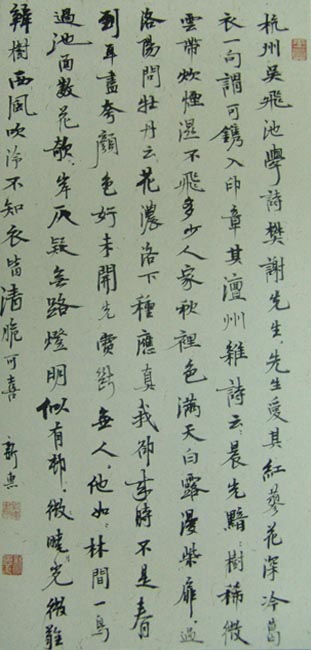 杭州吳飛池學詩樊謝先生先生愛其紅蓼花深冷葛
衣一句謂可鐫入印章其澶州雜詩云晨先黯々樹稀微
雲帶炊煙濕不飛多少人家秋裡色滿天白露漫柴扉過
洛陽問牡丹云花濃洛下種應真我卻來時不是春
到耳盡夸顏色好未開先賣斷無人他如林間一鳥
過池面數花欹岸仄疑無路燈明似有邨微曉光微難
辨樹西風吹淨不知衣皆清脆可喜 新